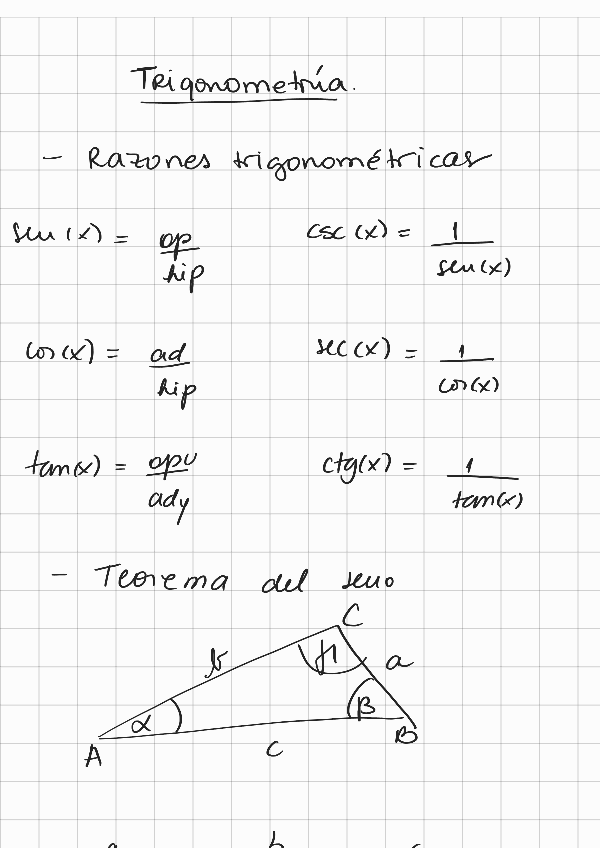 Trigonometría.
- Razones trigonométricas
sen(x) = op/hip csc(x) = 1/sen(x)
cos(x) = ad/hip sec(x) = 1/cos(x)
tan(x) = opu/ady ctg(x) = 1/tan(x)
- Teorema del seno
C
b a
α β
A c B